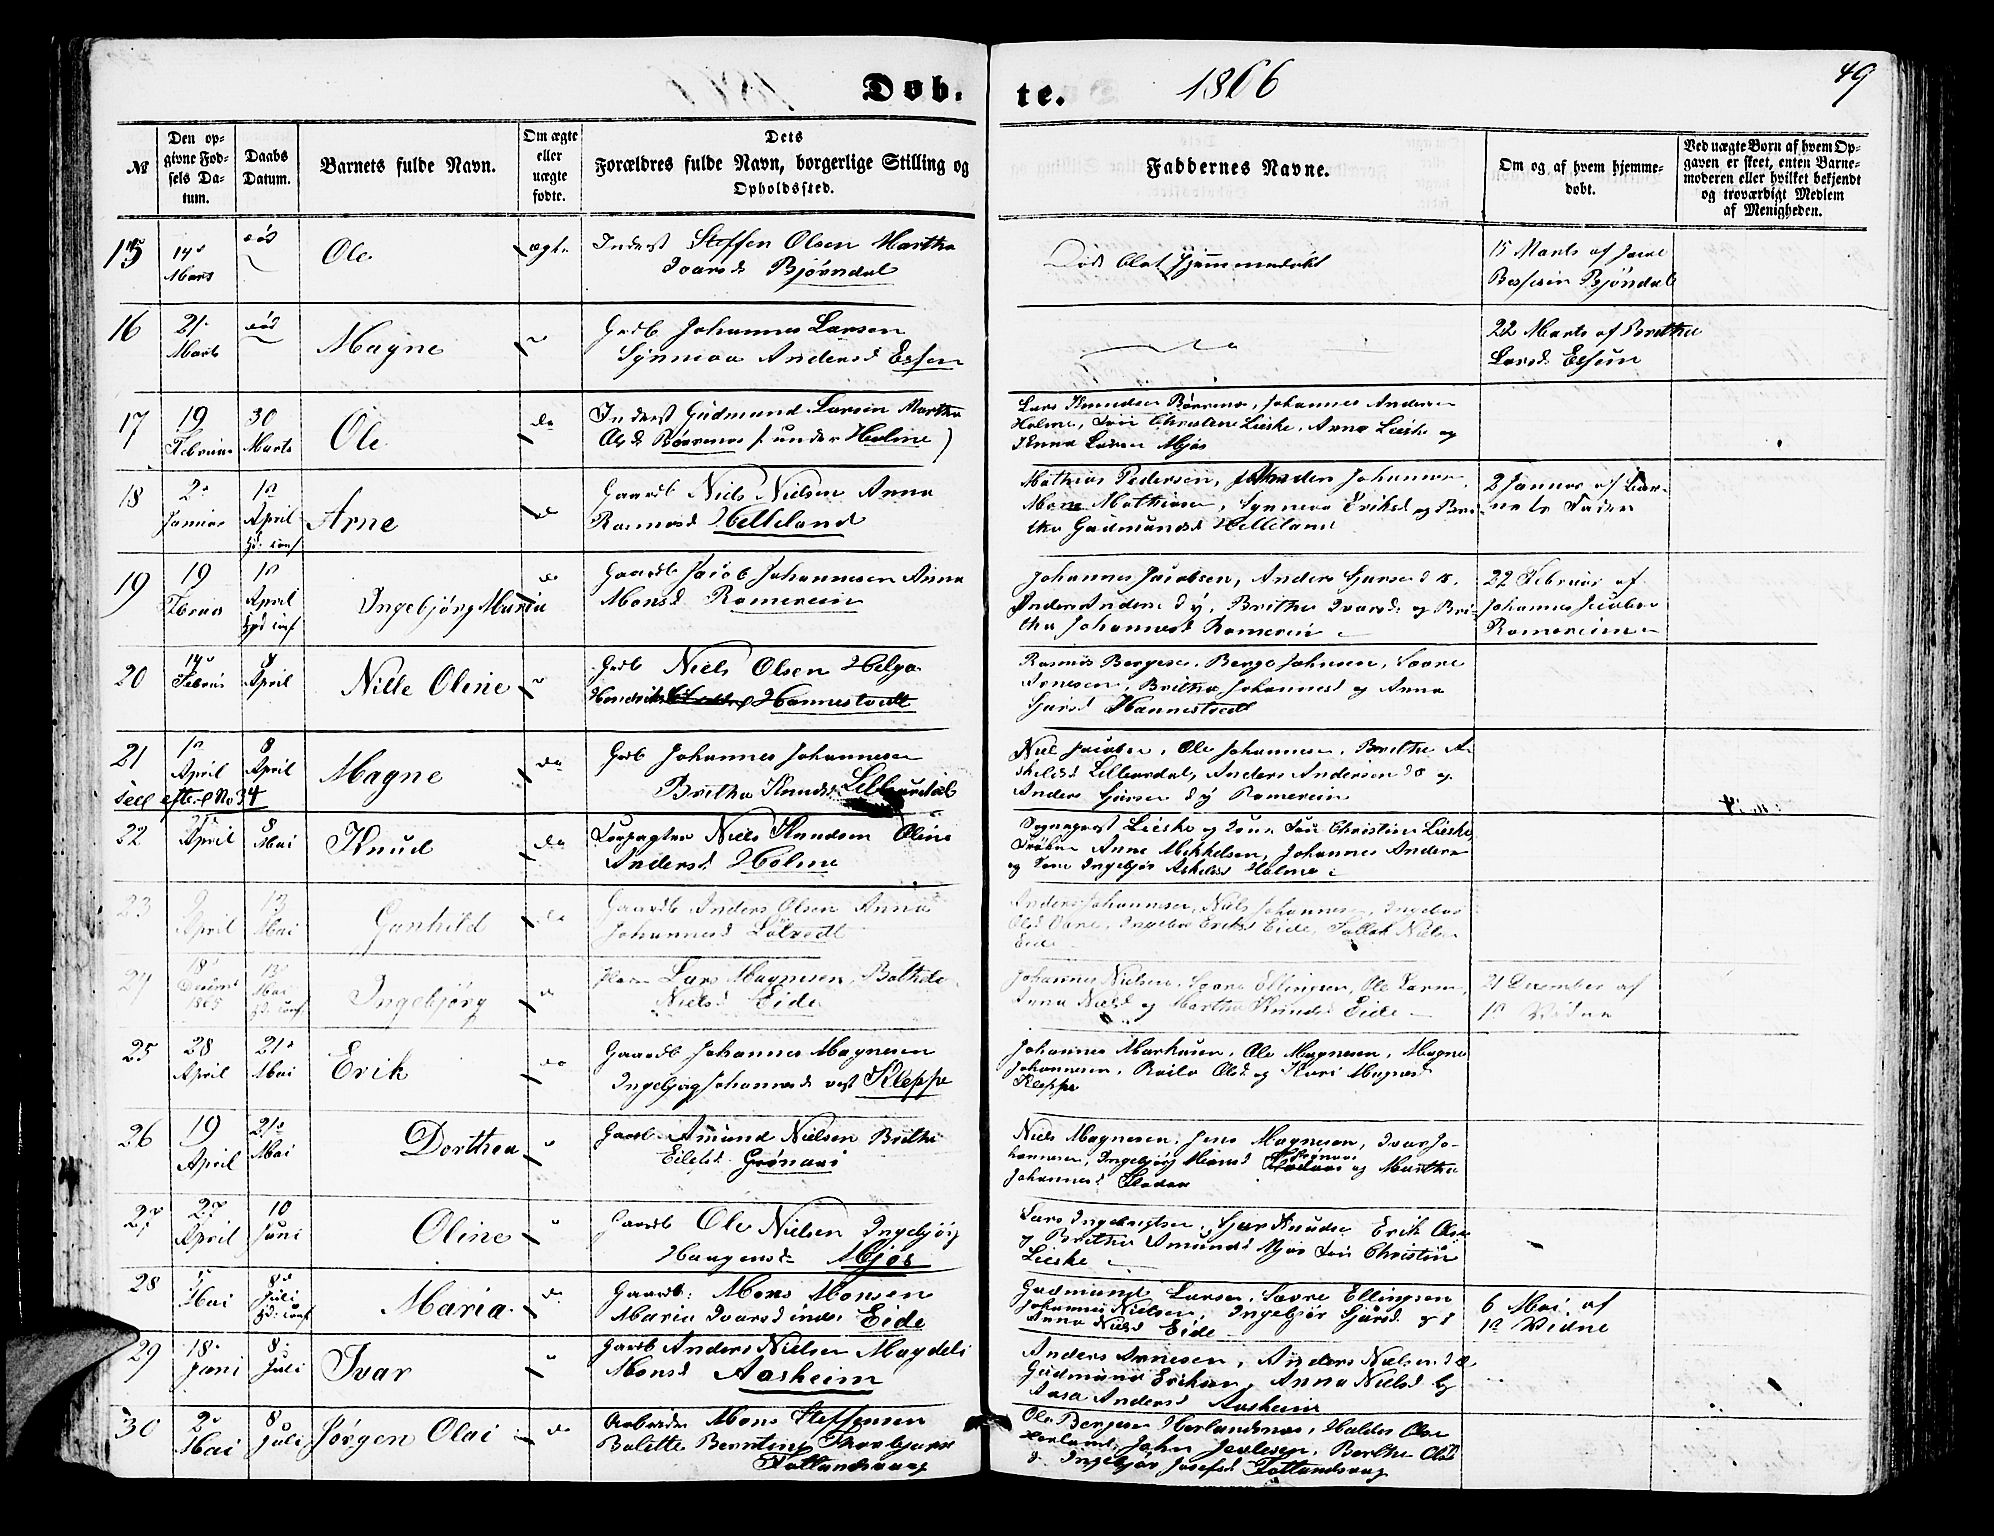 Døb-
te.
1866
49
№
Den op-
givne Fød-
sels Da-
tum.
Daabs
Datum.
Barnets fulde Navn.
Om ægte
eller
uægte
fødte.
Dets
Forældres fulde Navn, borgerlige Stilling og
Opholdssted.
Faddernes Navne.
Om og af hvem hjemme-
døbt.
Ved uægte Børn af hvem Op-
gaven er skeet, enten Barne-
moderen eller hvilket bekjendt
og troværdigt Medlem
af Menigheden.
15
14
Mars
død
Ole
ægte
Inderst Steffen Olsen Martha
Ivarsd Bjørndal
hjemmedøbt
15 Marts af
Bjøndal
16
21
Marts
død
Magne
Grdb Johannes Larsen
Synneva Andersd
22 Marts af Britha
Larsd
17
19
Februar
30
Marts
Ole
do
Inderst Gudmund Larsen Martha
under Holme)
Lars Knudsen Johannes Anderse
Holme, Christine Lieske, Anna Lieske og
Anna Larsen Mjøs
18
2
Januar
1
April
Arne
do
Gaardb Niels Nielsen Anna
Rasmusd Helleland
Mathias Pedersen, Anders Johannes
Mons Mathiasen, Synneva Eriksd og Bri-
tha Gudmundsd Helleland
2 Januar af Bar-
nets Fader
19
19
Februar
1
April
Ingebjørg Maria
do
Gaardb Jacob Johannesen Anna
Monsd Romereim
Johannes Jacobsen, Anders
Anders Anders d y, Britha Ivarsd og Bri-
tha Johannesd Romereim
22 Februar af
Johannes Jacobsen
Romereim
20
14
Februar
8
April
Nille Oline
Grdb Niels Olsen Helga
Hendriksd Hannestvedt
Rasmus Bergesen, Berge Johnsen, Sjovre
Arnesen, Britha Johannesd og Anna
Hannestvedt
21
1
April
8
April
see efter No 34
Magne
do
Grdb Johannes Johannesen
Britha Knudsd Lilleurdal
Niel Jacobsen, Ole Johannesen, Britha A-
skildsd Lilleurdal, Anders Andersen d æ og
Anders d y Romereim
22
April
8
Mai
Knud
do
Niels Knudsen Oline
Andersd Holme
Sogneprest Lieske og Christine Lieske
Anne Mikkelsen, Johannes Anders
og Ingebjør Askelsd Holme
23
9
April
13
Mai
Gunhild
do
Gaardb Anders Olsen Anna
Johannesd
Anders Johannesen, Niels Johannesen, Ingebor
Ingebor Eriksd Eide, Nielsen
Eide
24
18
Decembr
1865
13
Mai
Ingebjørg
Lars Magnesen, Bolthilde
Nielsd Eide
Johannes Nielsen, Sjovre Ellingsen, Ole Larsen,
Anna Nielsd og Martha Knudsd Eide
21 December af
Vidne
25
28
April
21
Mai
Erik
do
Gaardb Johannes Magnesen
Ingebjørg Johannesd Kleppe
Johannes Markusen, Ole Magnesen, Magne
Johannesen, Olsd og Kari Magnesd
Kleppe
26
19
April
21
Mai
Dorthea
Gaardb Amund Nielsen Britha
Grønavi
Niels Magnesen, Jens Magnesen, Ivar Jo-
hannesen, Ingebjørg Monsd og Martha
Johannesd
27
27
April
10
Juni
Oline
Gaardb Ole Nielsen Ingebjørg
Haagensd Mjøs
Lars Ingebrigtsen, Knudsen Erik Olsen
og Britha Amundsd Mjøs Christine
Lieske
28
5
Mai
8
Juli
Maria
do
Gaardb: Mons Monsen
Maria Ivarsd Eide
Gudmund Larsen, Sjovre Ellingsen
Johannes Nielsen, Ingebjør og
Anna Nielsd Eide
6 Mai af
Vidne
29
18
Juni
8
Juli
Ivar
Gaardb Anders Nielsen Magdeli
Monsd Aasheim
Anders Arnesen, Anders Nielsen d æ
Gudmund Eriksen, Anna Nielsd og
Aasa Andersd Aasheim
30
2
Mai
8
Juli
Jørgen Olai
do
Mons Steffensen
Bolette Berntine
Fotlandsvaag
Ole Bergesen Herlandsnes, Haldor Olsen
Herland, John Joelesen, Berthe Olsd
Ingebjør Josefsd Fotlandsvaag